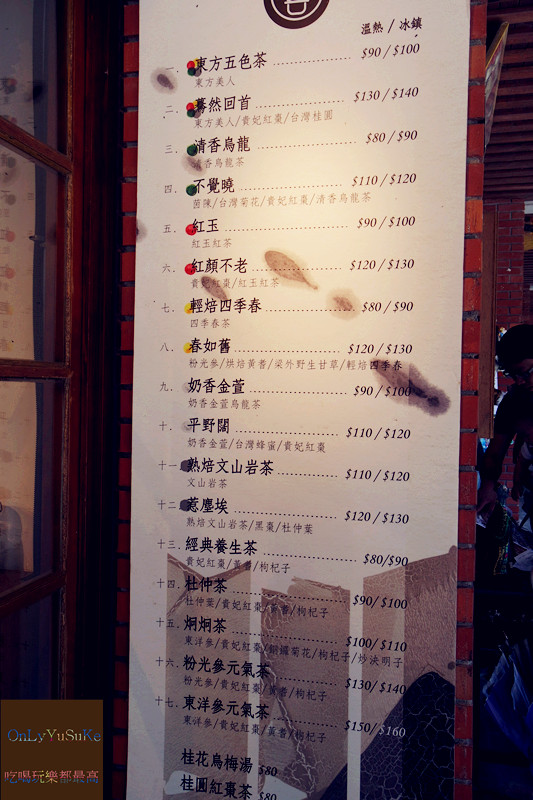 溫熱 / 冰鎮
一. 東方五色茶 $90 / $100
東方美人
二. 驀然回首 $130 / $140
東方美人/貴妃紅棗/台灣桂圓
三. 清香烏龍 $80 / $90
清香烏龍茶
四. 不覺曉 $110 / $120
茵陳/台灣菊花/貴妃紅棗/清香烏龍茶
五. 紅玉 $90 / $100
紅玉紅茶
六. 紅顏不老 $120 / $130
貴妃紅棗/紅玉紅茶
七. 輕焙四季春 $80 / $90
四季春茶
八. 春如舊 $120 / $130
粉光參/烘焙黃耆/梁外野生甘草/輕焙四季春
九. 奶香金萱 $90 / $100
奶香金萱烏龍茶
十. 平野闊 $110 / $120
奶香金萱/台灣蜂蜜/貴妃紅棗
十一. 熟焙文山岩茶 $110 / $120
文山岩茶
十二. 惹塵埃 $120 / $130
熟焙文山岩茶/黑棗/杜仲葉
十三. 經典養生茶 $80/$90
貴妃紅棗/黃耆/枸杞子
十四. 杜仲茶 $90/ $100
杜仲葉/貴妃紅棗/黃耆/枸杞子
十五. 炯炯茶 $100/ $110
東洋參/貴妃紅棗/銅鑼菊花/枸杞子/炒決明子
十六. 粉光參元氣茶 $130/ $140
粉光參/貴妃紅棗/黃耆/枸杞子
十七. 東洋參元氣茶 $150/ $160
東洋參/貴妃紅棗/黃耆/枸杞子
桂花烏梅湯 $80
桂圓紅棗茶 $80
OnLyYuSuKe
吃喝玩樂都最高